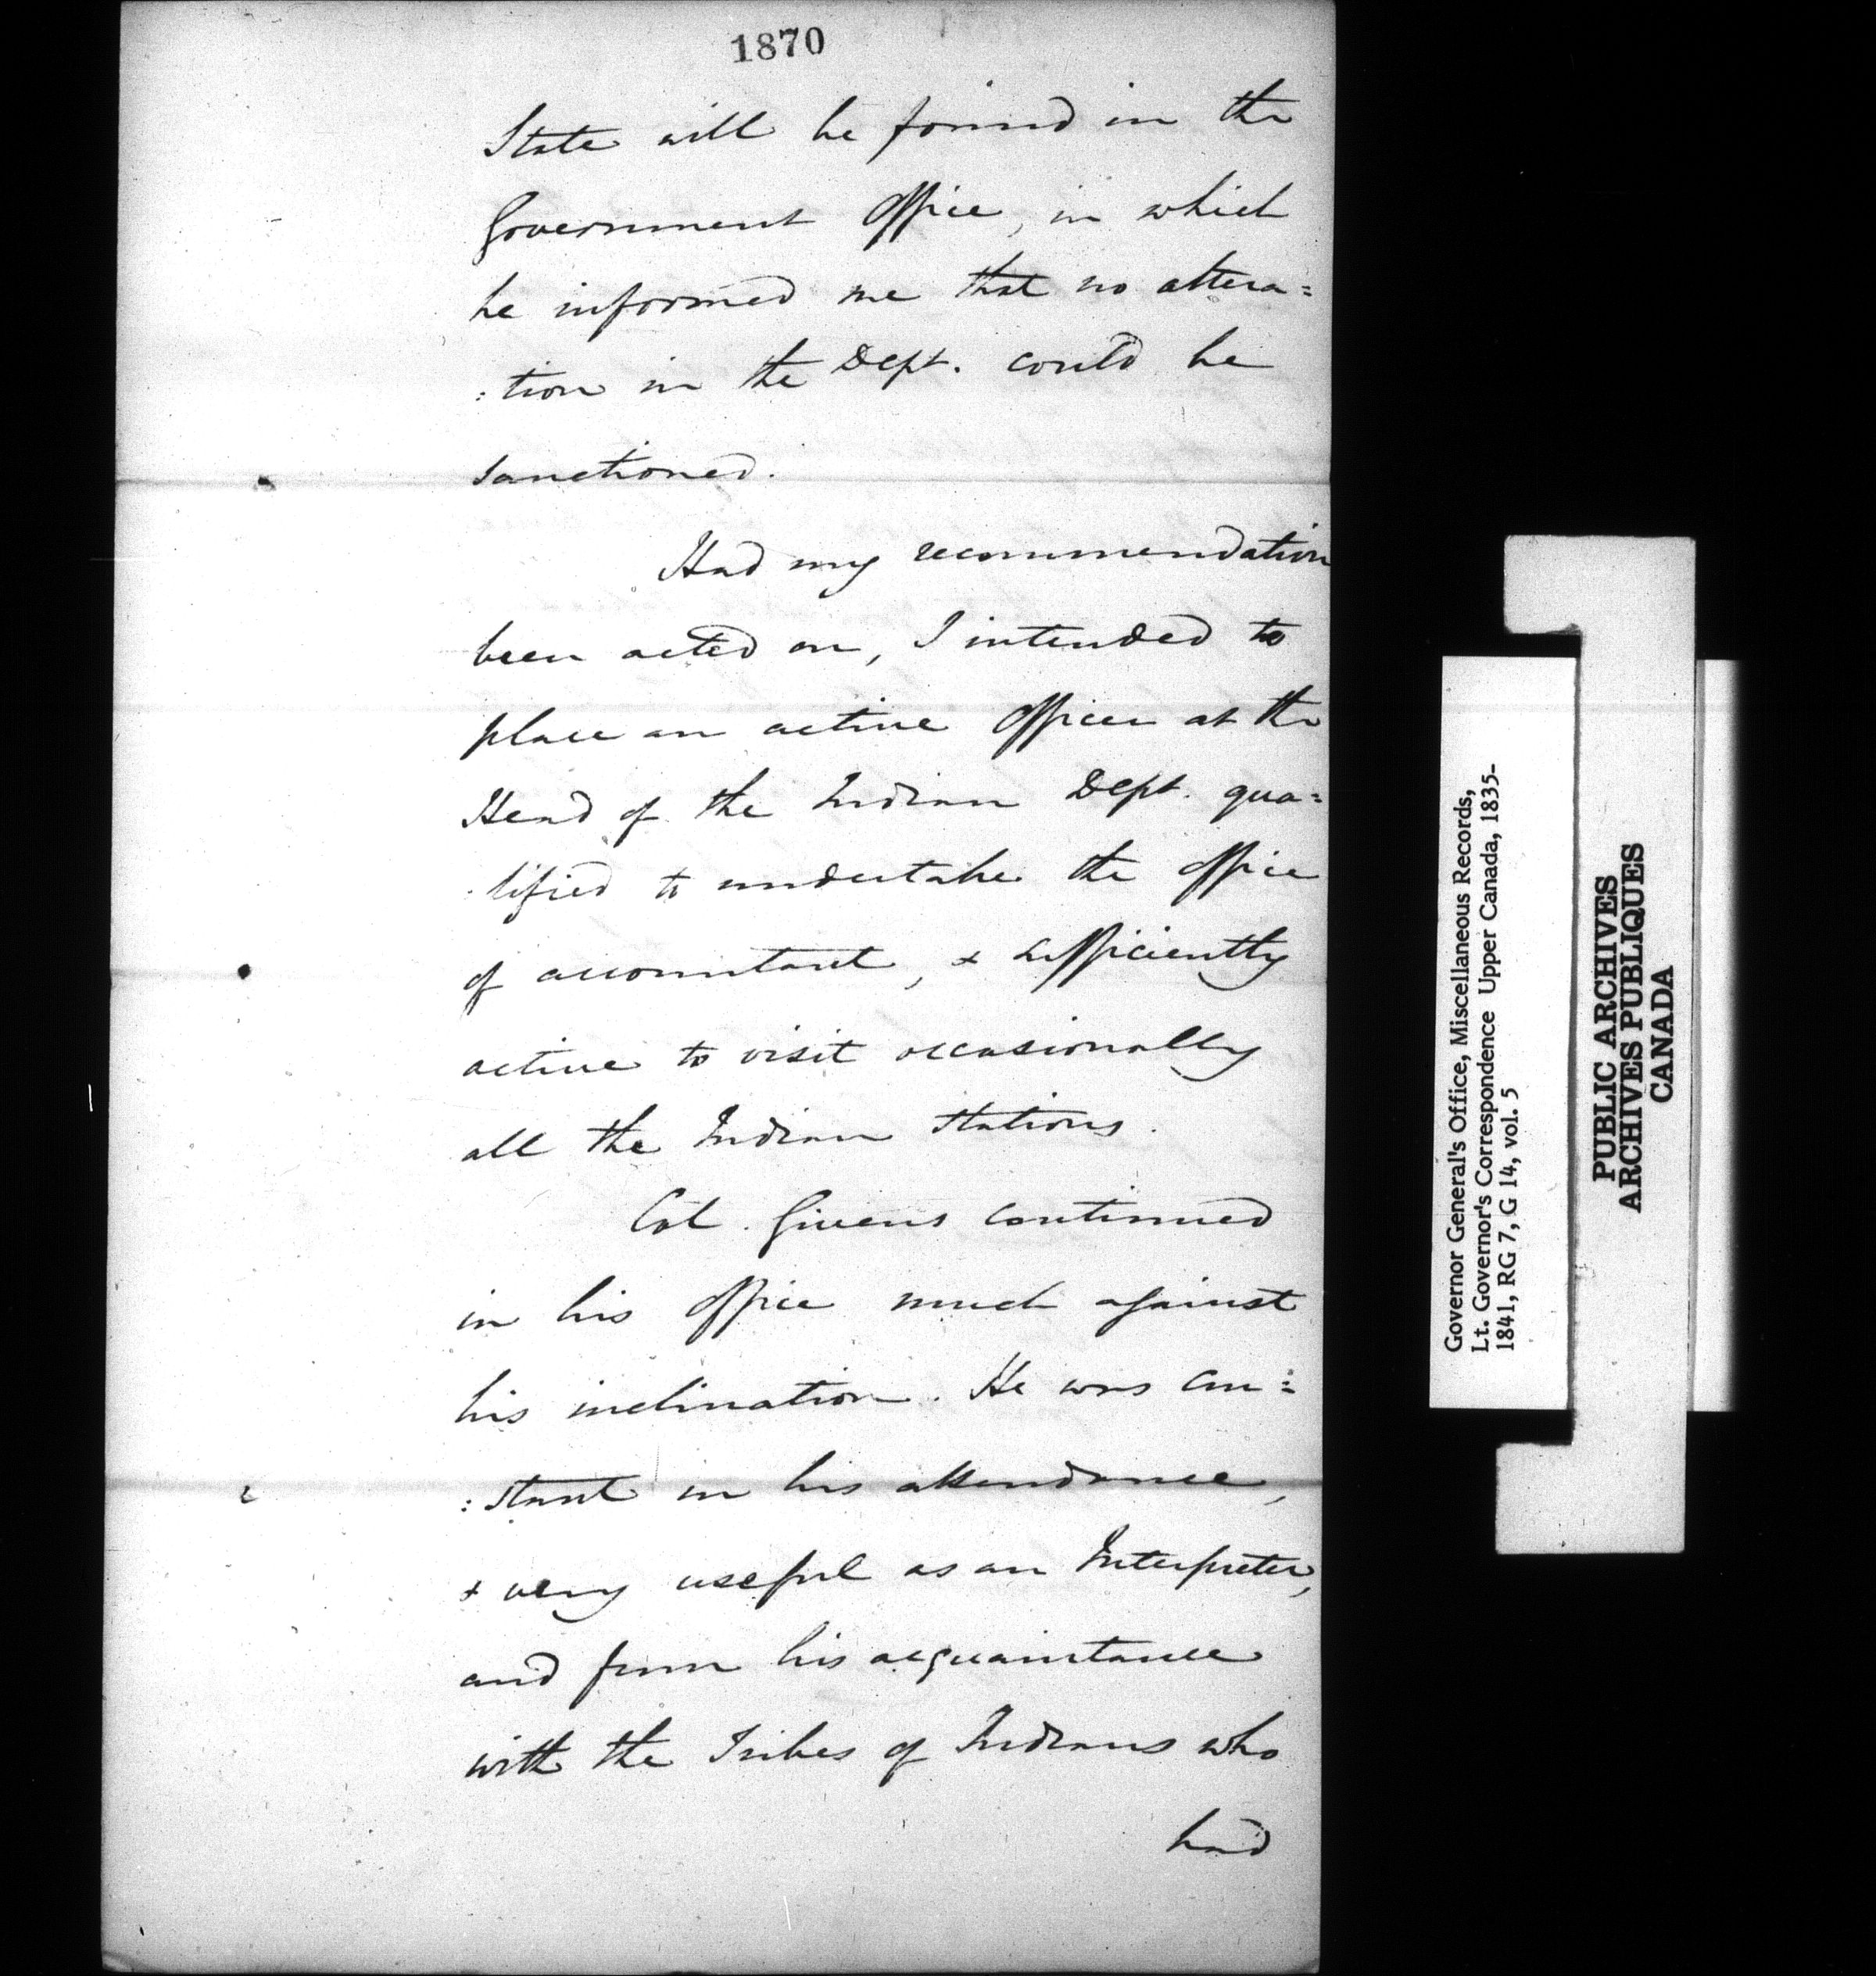 1870
State will be found in the
Government Office, in which
he informed me that no altera=
:tion in the Dept. could be
sanctioned.
Had my recommendation
been acted on, I intended to
place an active Officer at the
Head of the Indian Dept. qua=
:lified to undertake the office
of accountant, & sufficiently
active to visit occasionally
all the Indian Stations.
Col. Givens continued
in his Office much against
his inclination. He was con=
:stant in his attendance,
& very useful as an Interpreter,
and from his acquaintance
with the Tribes of Indians who
had
Governor General's Office, Miscellaneous Records,
Lt. Governor's Correspondence Upper Canada, 1835-
1841, RG 7, G 14, vol. 5
PUBLIC ARCHIVES
ARCHIVES PUBLIQUES
CANADA